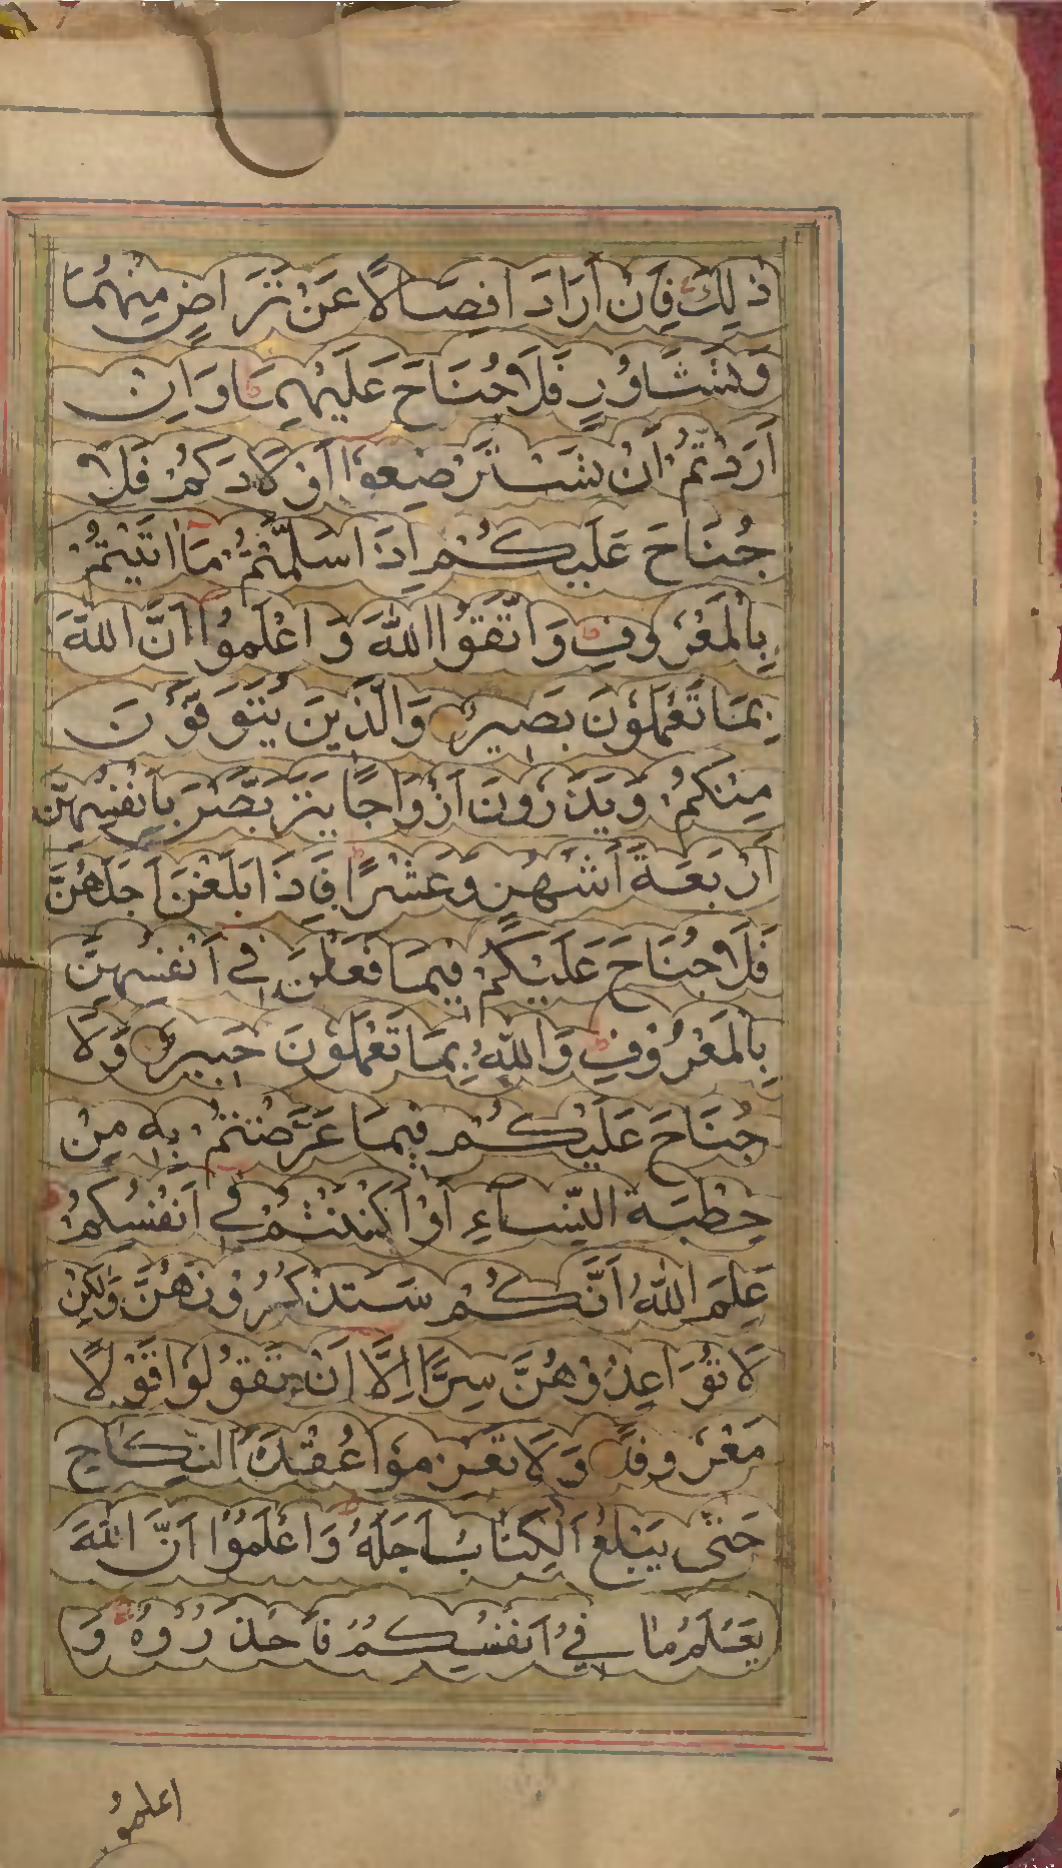 ذٰلِكَ فَاِنْ اَرَادَ افِصَالًا عَنْ تَرَاضٍ مِنْهُمَا
وَتَشَاوُرٍ فَلَا جُنَاحَ عَلَيْهِمَا وَاِنْ
اَرَدْتُمْ اَنْ تَسْتَرْضِعُوا اَوْلَادَكُمْ فَلَا
جُنَاحَ عَلَيْكُمْ اِذَا سَلَّمْتُمْ مَا اٰتَيْتُمْ
بِالْمَعْرُوفِ وَاتَّقُوا اللّٰهَ وَ اعْلَمُوا اَنَّ اللّٰهَ
بِمَا تَعْمَلُوْنَ بَصِيرٌ وَالَّذِينَ يُتَوَفَّوْنَ
مِنْكُمْ وَيَذَرُونَ اَزْوَاجًا يَتَرَبَّصْنَ بِاَنْفُسِهِنَّ
اَرْبَعَةَ اَشْهُرٍ وَعَشْرًا فَاِذَا بَلَغْنَ اَجَلَهُنَّ
فَلَا جُنَاحَ عَلَيْكُمْ فِيمَا فَعَلْنَ فِي اَنْفُسِهِنَّ
بِالْمَعْرُوْفِ وَاللّٰهُ بِمَا تَعْمَلُوْنَ خَبِيرٌ وَلَا
جُنَاحَ عَلَيْكُمْ فِيمَا عَرَّضْتُمْ بِهِ مِنْ
خِطْبَةِ النِّسَاءِ اَوْ اَكْنَنْتُمْ فِي اَنْفُسِكُمْ
عَلِمَ اللّٰهُ اَنَّكُمْ سَتَذْكُرُوْنَهُنَّ وَلٰكِنْ
لَا تُوَاعِدُوْهُنَّ سِرًّا اِلَّا اَنْ تَقُولُوا قَوْلًا
مَعْرُوفًا وَلَا تَعْزِمُوْا عُقْدَةَ النِّكَاحِ
حَتّٰى يَبْلُغَ الْكِتَابُ اَجَلَهُ وَاعْلَمُوْا اَنَّ اللّٰهَ
يَعْلَمُ مَا فِيْ اَنْفُسِكُمْ فَاحْذَرُوْهُ وَ
اعلموُ